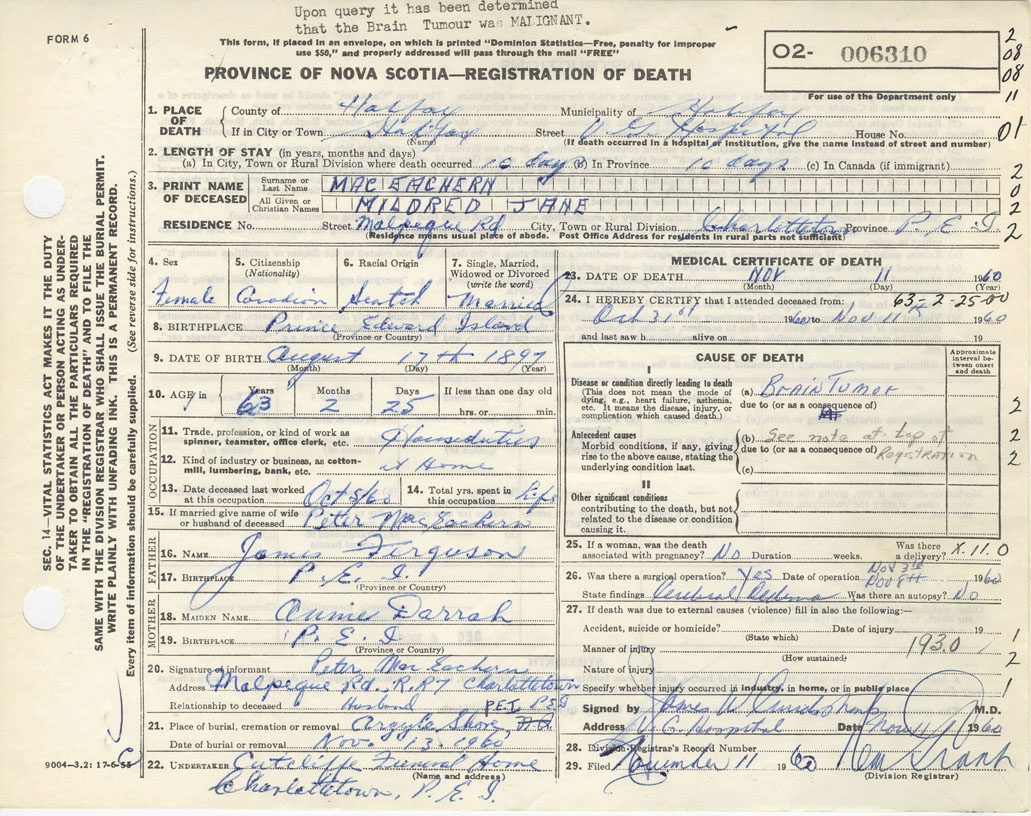 Upon query it has been determined
that the Brain Tumour was MALIGNANT.
FORM 6
This form, if placed in an envelope, on which is printed "Dominion Statistics—Free, penalty for improper
use $50," and properly addressed will pass through the mail "FREE"
PROVINCE OF NOVA SCOTIA—REGISTRATION OF DEATH
O2- 006310
For use of the Department only
2
08
08
11
01
2
0
2
2
1. PLACE OF DEATH County of Halifax Municipality of Halifax
If in City or Town Halifax Street V G Hospital House No.
(Name) (If death occurred in a hospital or institution, give the name instead of street and number)
2. LENGTH OF STAY (in years, months and days)
(a) In City, Town or Rural Division where death occurred 10 days (b) In Province 10 days (c) In Canada (if immigrant)
3. PRINT NAME OF DECEASED Surname or Last Name MAC EACHERN
All Given or Christian Names MILDRED JANE
RESIDENCE No. Street Malpeque Rd City, Town or Rural Division Charlottetown Province P. E. I
(Residence means usual place of abode. Post Office Address for residents in rural parts not sufficient)
4. Sex Female
5. Citizenship (Nationality) Canadian
6. Racial Origin Scotch
7. Single, Married, Widowed or Divorced (write the word) Married
8. BIRTHPLACE Prince Edward Island
(Province or Country)
9. DATE OF BIRTH August 17th 1897
(Month) (Day) (Year)
10. AGE in Years 63 Months 2 Days 25 If less than one day old
hrs. or min.
OCCUPATION
11. Trade, profession, or kind of work as spinner, teamster, office clerk, etc. Housduties
12. Kind of industry or business, as cotton-mill, lumbering, bank, etc. at Home
13. Date deceased last worked at this occupation Oct 5/60 14. Total yrs. spent in this occupation Life
15. If married give name of wife or husband of deceased Peter MacEachern
FATHER
16. NAME James Ferguson
17. BIRTHPLACE P. E. I.
(Province or Country)
MOTHER
18. MAIDEN NAME Annie Darrah
19. BIRTHPLACE P. E. I
(Province or Country)
20. Signature of informant Peter MacEachern
Address Malpeque Rd. R.R7 Charlottetown
Relationship to deceased Husband P.E.I
21. Place of burial, cremation or removal Argyle Shore, P.E.I.
Date of burial or removal Nov. 13. 1960
22. UNDERTAKER Cutcliffe Funeral Home
(Name and address)
Charlottetown, P. E. I.
9004—3.2: 17-6-58
MEDICAL CERTIFICATE OF DEATH
23. DATE OF DEATH NOV 11 1960
(Month) (Day) (Year)
63-2-25-00
24. I HEREBY CERTIFY that I attended deceased from:
Oct 31st 1960 to Nov 11th 1960
and last saw h alive on 19
CAUSE OF DEATH
Approximate interval between onset and death
I
Disease or condition directly leading to death
(This does not mean the mode of dying, e.g., heart failure, asthenia, etc. It means the disease, injury, or complication which caused death.)
(a) Brain Tumor
due to (or as a consequence of)
Antecedent causes
Morbid conditions, if any, giving rise to the above cause, stating the underlying condition last.
(b) See note at top of
due to (or as a consequence of) REGISTRATION
(c)
II
Other significant conditions
contributing to the death, but not related to the disease or condition causing it.
2
2
2
25. If a woman, was the death associated with pregnancy? No Duration weeks. Was there a delivery? X.11.0
26. Was there a surgical operation? Yes Date of operation Nov 3rd Nov 8th 1960
State findings Cerebral Oedema Was there an autopsy? No
27. If death was due to external causes (violence) fill in also the following:—
Accident, suicide or homicide? Date of injury 19
(State which)
Manner of injury 193.0
(How sustained)
Nature of injury
Specify whether injury occurred in industry, in home, or in public place
1
2
1
Signed by M.D.
Address V. G. Hospital Date Nov 11 1960
28. Division Registrar's Record Number
29. Filed November 11 1960
(Division Registrar)
SEC. 14—VITAL STATISTICS ACT MAKES IT THE DUTY
OF THE UNDERTAKER OR PERSON ACTING AS UNDER-
TAKER TO OBTAIN ALL THE PARTICULARS REQUIRED
IN THE "REGISTRATION OF DEATH" AND TO FILE THE
SAME WITH THE DIVISION REGISTRAR WHO SHALL ISSUE THE BURIAL PERMIT.
WRITE PLAINLY WITH UNFADING INK. THIS IS A PERMANENT RECORD.
Every item of information should be carefully supplied. (See reverse side for instructions.)